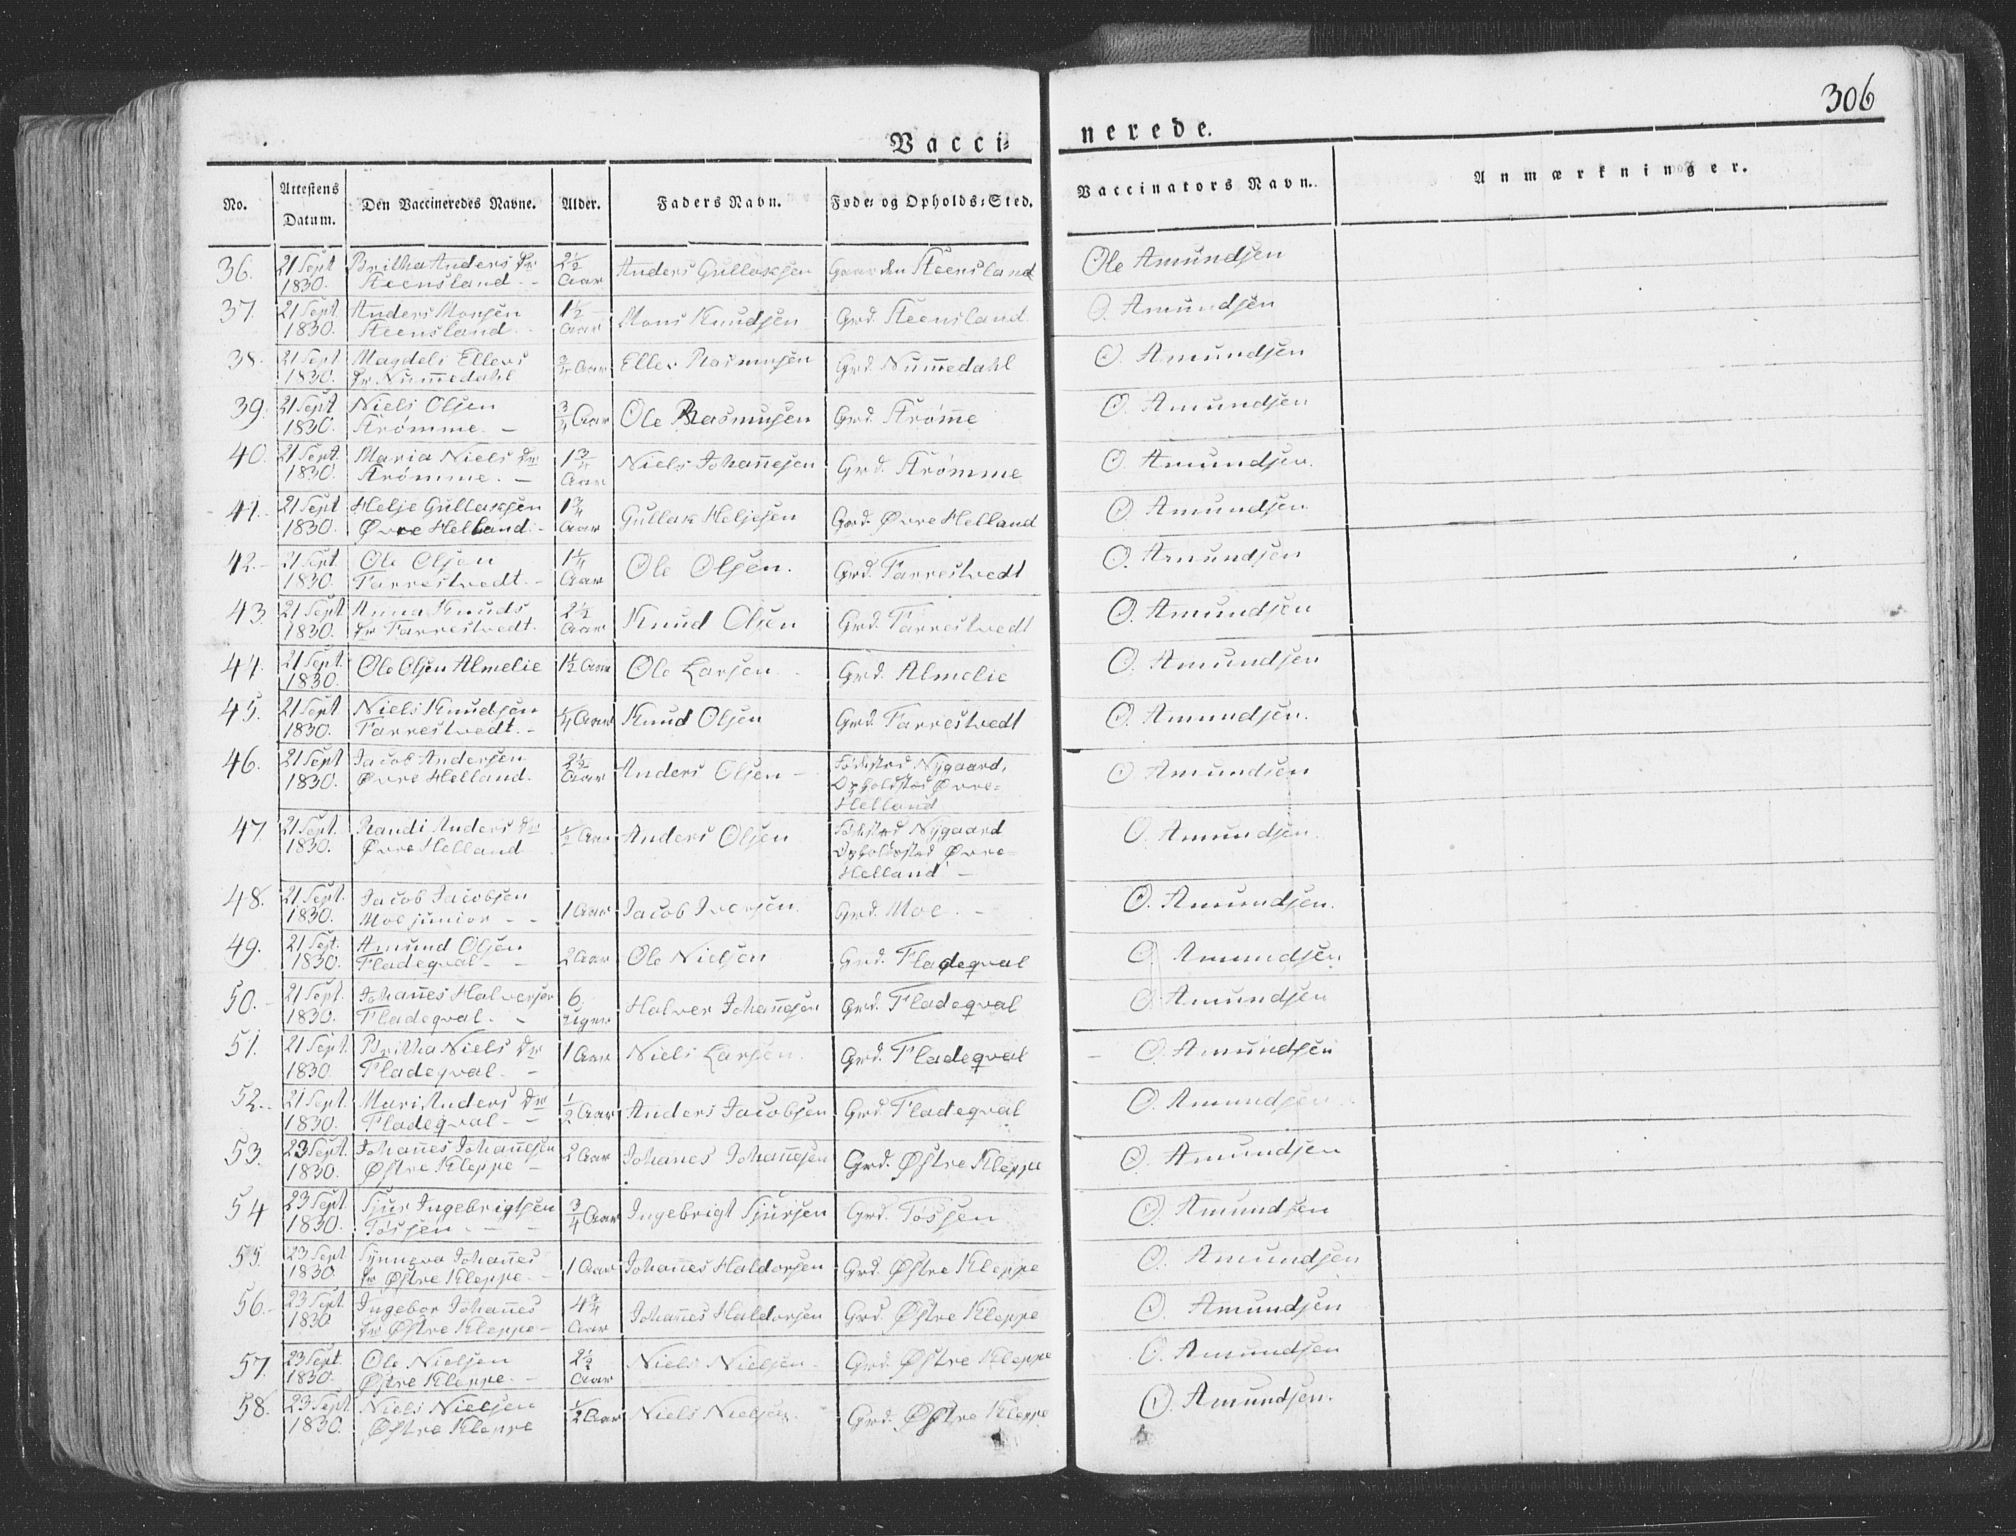 306
Vacci=
nerede.
No.
Attestens Datum.
Den Vaccineredes Navne.
Alder.
Faders Navn.
Føde= og Opholds=Sted.
Vaccinators Navn.
Anmærkninger.
36. 21 Sept 1830. Britha Anders Dr Steensland. 2½ Aar Anders Gullaksen Gaarden Steensland Ole Amundsen
37. 21 Sept 1830. Anders Monsen Steensland. 1½ Aar Mons Knudsen Grd. Steensland O. Amundsen
38. 21 Sept 1830. Magdeli Ellers Dr Num̅edahl Aar Eller Rasmusen Grd Num̅edahl O. Amundsen
39. 21 Sept 1830. Niels Olsen Strømme. ¾ Aar Ole Rasmusen Grd Strøm̅e O. Amundsen
40. 21 Sept 1830. Maria Niels Dr Strømme. 1¾ Aar Niels Johan̅esen Grd. Strømme O. Amundsen.
41. 21 Sept 1830. Helje Gullaksen Øvre Helland. 1¾ Aar Gullak Heljesen Grd. Øvre Helland O. Amundsen
42. 21 Sept. 1830. Ole Olsen Farrestvedt. 1¼ Aar Ole Olsen. Grd. Farrestvedt O. Amundsen
43. 21 Sept 1830. Anna Knuds Dr Farrestvedt. 2½ Aar Knud Olsen Grd. Farrestvedt O. Amundsen
44. 21 Sept. 1830. Ole Olsen Almelie 1½ Aar Ole Larsen Grd. Almelie O. Amundsen
45. 21 Sept 1830. Niels Knudsen Farrestvedt. ¼ Aar Knud Olsen Grd Farrestvedt O. Amundsen.
46. 21 Sept 1830. Jacob Andersen Øvre Helland. 2½ Aar Anders Olsen Fødested Nygaard, Opholdsted Øvre= Helland O. Amundsen
47 21 Sept. 1830. Randi Anders Dr Øvre Helland ½ Aar Anders Olsen Fødested Nygaard Opholdsted Øvre= Helland O. Amundsen.
48. 21 Sept. 1830. Jacob Jacobsen Moe junior 1 Aar Jacob Iversen Grd. Moe. O. Amundsen.
49. 21 Sept. 1830. Amund Olsen Fladeqval 2 Aar Ole Nielsen Grd. Fladeqval O. Amundsen
50. 21 Sept. 1830. Johan̅es Halversen Fladeqval. 6 Uger Halver Johan̅esen Grd. Fladeqval O. Amundsen
51. 21 Sept. 1830 Britha Niels Dr Fladeqval. 1 Aar Niels Larsen Grd. Fladeqval O. Amundsen
52. 21 Sept. 1830. Mari Anders Dr Fladeqval. ½ Aar Anders Jacobsen Grd. Fladeqval O. Amundsen
53. 23 Sept. 1830. Johan̅es Johan̅esen Østre Kleppe 2 Aar Johan̅es Johan̅esen Grd. Østre Kleppe O. Amundsen
54 23 Sept. 1830. Sjur Ingebrigtsen Tøssen. ¾ Aar Ingebrigt Sjursen Grd. Tøssen O. Amundsen
55. 23 Sept 1830. Synneva Johan̅es Dr Østre Kleppe. 1 Aar Johan̅es Haldorsen Grd. Østre Kleppe O. Amundsen
56. 23 Sept. 1830 Ingebor Johan̅es Dr Østre Kleppe 4¾ Aar Johan̅es Haldorsen Grd Østre Kleppe O. Amundsen
57. 23 Sept. 1830. Ole Nielsen Østre Kleppe. 2½ Aar Niels Nielsen Grd. Østre Kleppe O. Amundsen
58. 23 Sept. 1830. Niels Nielsen Østre Kleppe ½ Aar Niels Nielsen. Grd. Østre Kleppe O. Amundsen.